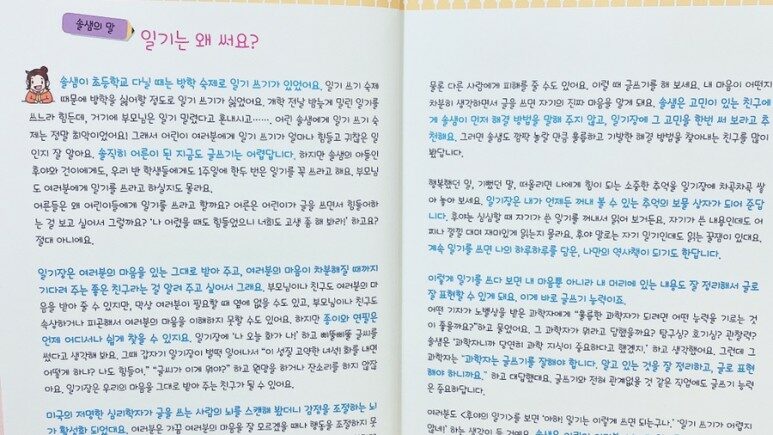 솔샘의 말
일기는 왜 써요?
솔샘이 초등학교 다닐 때는 방학 숙제로 일기 쓰기가 있었어요. 일기 쓰기 숙제
때문에 방학을 싫어할 정도로 일기 쓰기가 싫었어요. 개학 전날 밤늦게 밀린 일기를
쓰느라 힘든데, 거기에 부모님은 일기 밀렸다고 혼내시고……. 어린 솔샘에게 일기 쓰기 숙
제는 정말 최악이었어요! 그래서 어린이 여러분에게 일기 쓰기가 얼마나 힘들고 귀찮은 일
인지 잘 알아요. 솔직히 어른이 된 지금도 글쓰기는 어렵답니다. 하지만 솔샘의 아들인
후야와 건이에게도, 우리 반 학생들에게도 1주일에 한두 번은 일기를 꼭 쓰라고 해요. 부모님
도 여러분에게 일기를 쓰라고 하실지도 몰라요.
어른들은 왜 어린이들에게 일기를 쓰라고 할까요? 어른은 어린이가 글을 쓰면서 힘들어하
는 걸 보고 싶어서 그럴까요? '나 어렸을 때도 힘들었으니 너희도 고생 좀 해 봐라!' 하고요?
절대 아니에요.
일기장은 여러분의 마음을 있는 그대로 받아 주고, 여러분의 마음이 차분해질 때까지
기다려 주는 좋은 친구라는 걸 알려 주고 싶어서 그래요. 부모님이나 친구도 여러분의 마
음을 받아 줄 수 있지만, 막상 여러분이 필요할 때 옆에 없을 수도 있고, 부모님이나 친구도
속상하거나 피곤해서 여러분의 마음을 이해하지 못할 수도 있어요. 하지만 종이와 연필은
언제 어디서나 쉽게 찾을 수 있지요. 일기장에 '나 오늘 화가 나!' 하고 삐뚤삐뚤 글씨를
썼다고 생각해 봐요. 그때 갑자기 일기장이 벌떡 일어나서 "이 성질 고약한 녀석! 화를 내면
어떻게 하니? 나도 힘들어." "글씨가 이게 뭐야?" 하고 원망을 하거나 잔소리를 하지 않잖
아요. 일기장은 우리의 마음을 그대로 받아 주는 친구가 될 수 있어요.
미국의 저명한 심리학자가 글을 쓰는 사람의 뇌를 스캔해 봤더니 감정을 조정하는 뇌
가 활성화 되었대요. 여러분은 가끔 여러분의 마음을 잘 모르겠을 때나 행동을 조정하지 못
물론 다른 사람에게 피해를 줄 수도 있어요. 이럴 때 글쓰기를 해 보세요. 내 마음이 어떤지
차분히 생각하면서 글을 쓰면 자기의 진짜 마음을 알게 돼요. 솔샘은 고민이 있는 친구에
게 솔샘이 먼저 해결 방법을 말해 주지 않고, 일기장에 그 고민을 한번 써 보라고 추
천해요. 그러면 솔샘도 깜짝 놀랄 만큼 훌륭하고 기발한 해결 방법을 찾아내는 친구를 많이
봤답니다.
행복했던 일, 기뻤던 일, 떠올리면 나에게 힘이 되는 소중한 추억을 일기장에 차곡차곡 쌓
아 놓아 보세요. 일기장은 내가 언제든 꺼내 볼 수 있는 추억의 보물 상자가 되어 준답니
다. 후야는 심심할 때 자기가 쓴 일기를 꺼내서 읽어 보거든요. 자기가 쓴 내용인데도 어
찌나 낄낄 대며 재미있게 읽는지 몰라요. 후야 말로는 자기 일기인데도 읽는 꿀잼이 있대요.
계속 일기를 쓰면 나의 하루하루를 담은, 나만의 역사책이 되기도 한답니다.
이렇게 일기를 쓰다 보면 내 마음뿐 아니라 내 머리에 있는 내용도 잘 정리해서 글로
잘 표현할 수 있게 돼요. 이게 바로 글쓰기 능력이죠.
어떤 기자가 노벨상을 받은 과학자에게 "훌륭한 과학자가 되려면 어떤 능력을 기르는 것
이 좋을까요?"하고 물었어요. 그 과학자가 뭐라고 답했을까요? 탐구심? 호기심? 관찰력?
솔샘은 '과학자니까 당연히 과학 지식이 중요하다고 했겠지.' 하고 생각했어요. 그런데 그
과학자는 "과학자는 글쓰기를 잘해야 합니다. 알고 있는 것을 잘 정리하고, 글로 표현
해야 하니까요." 하고 대답했대요. 글쓰기와 전혀 관계없을 것 같은 직업에도 글쓰기 능력
은 중요하답니다.
여러분도 <후야의 일기>를 보면 '아하! 일기는 이렇게 쓰면 되는구나.' '일기 쓰기가 어렵지
않네!' 하는 생각이 들 거예요.